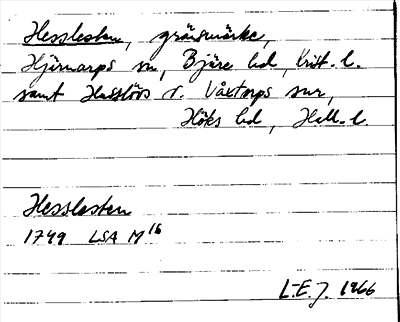 Hesslesten, gränsmärke,
Hjärnarps sn, Bjäre hd, Krist. l.
samt Hasslövs o. Våxtorps snr,
Höks hd, Hall. l.
Hesslesten
1749 LSA M 16
L-E. J. 1966